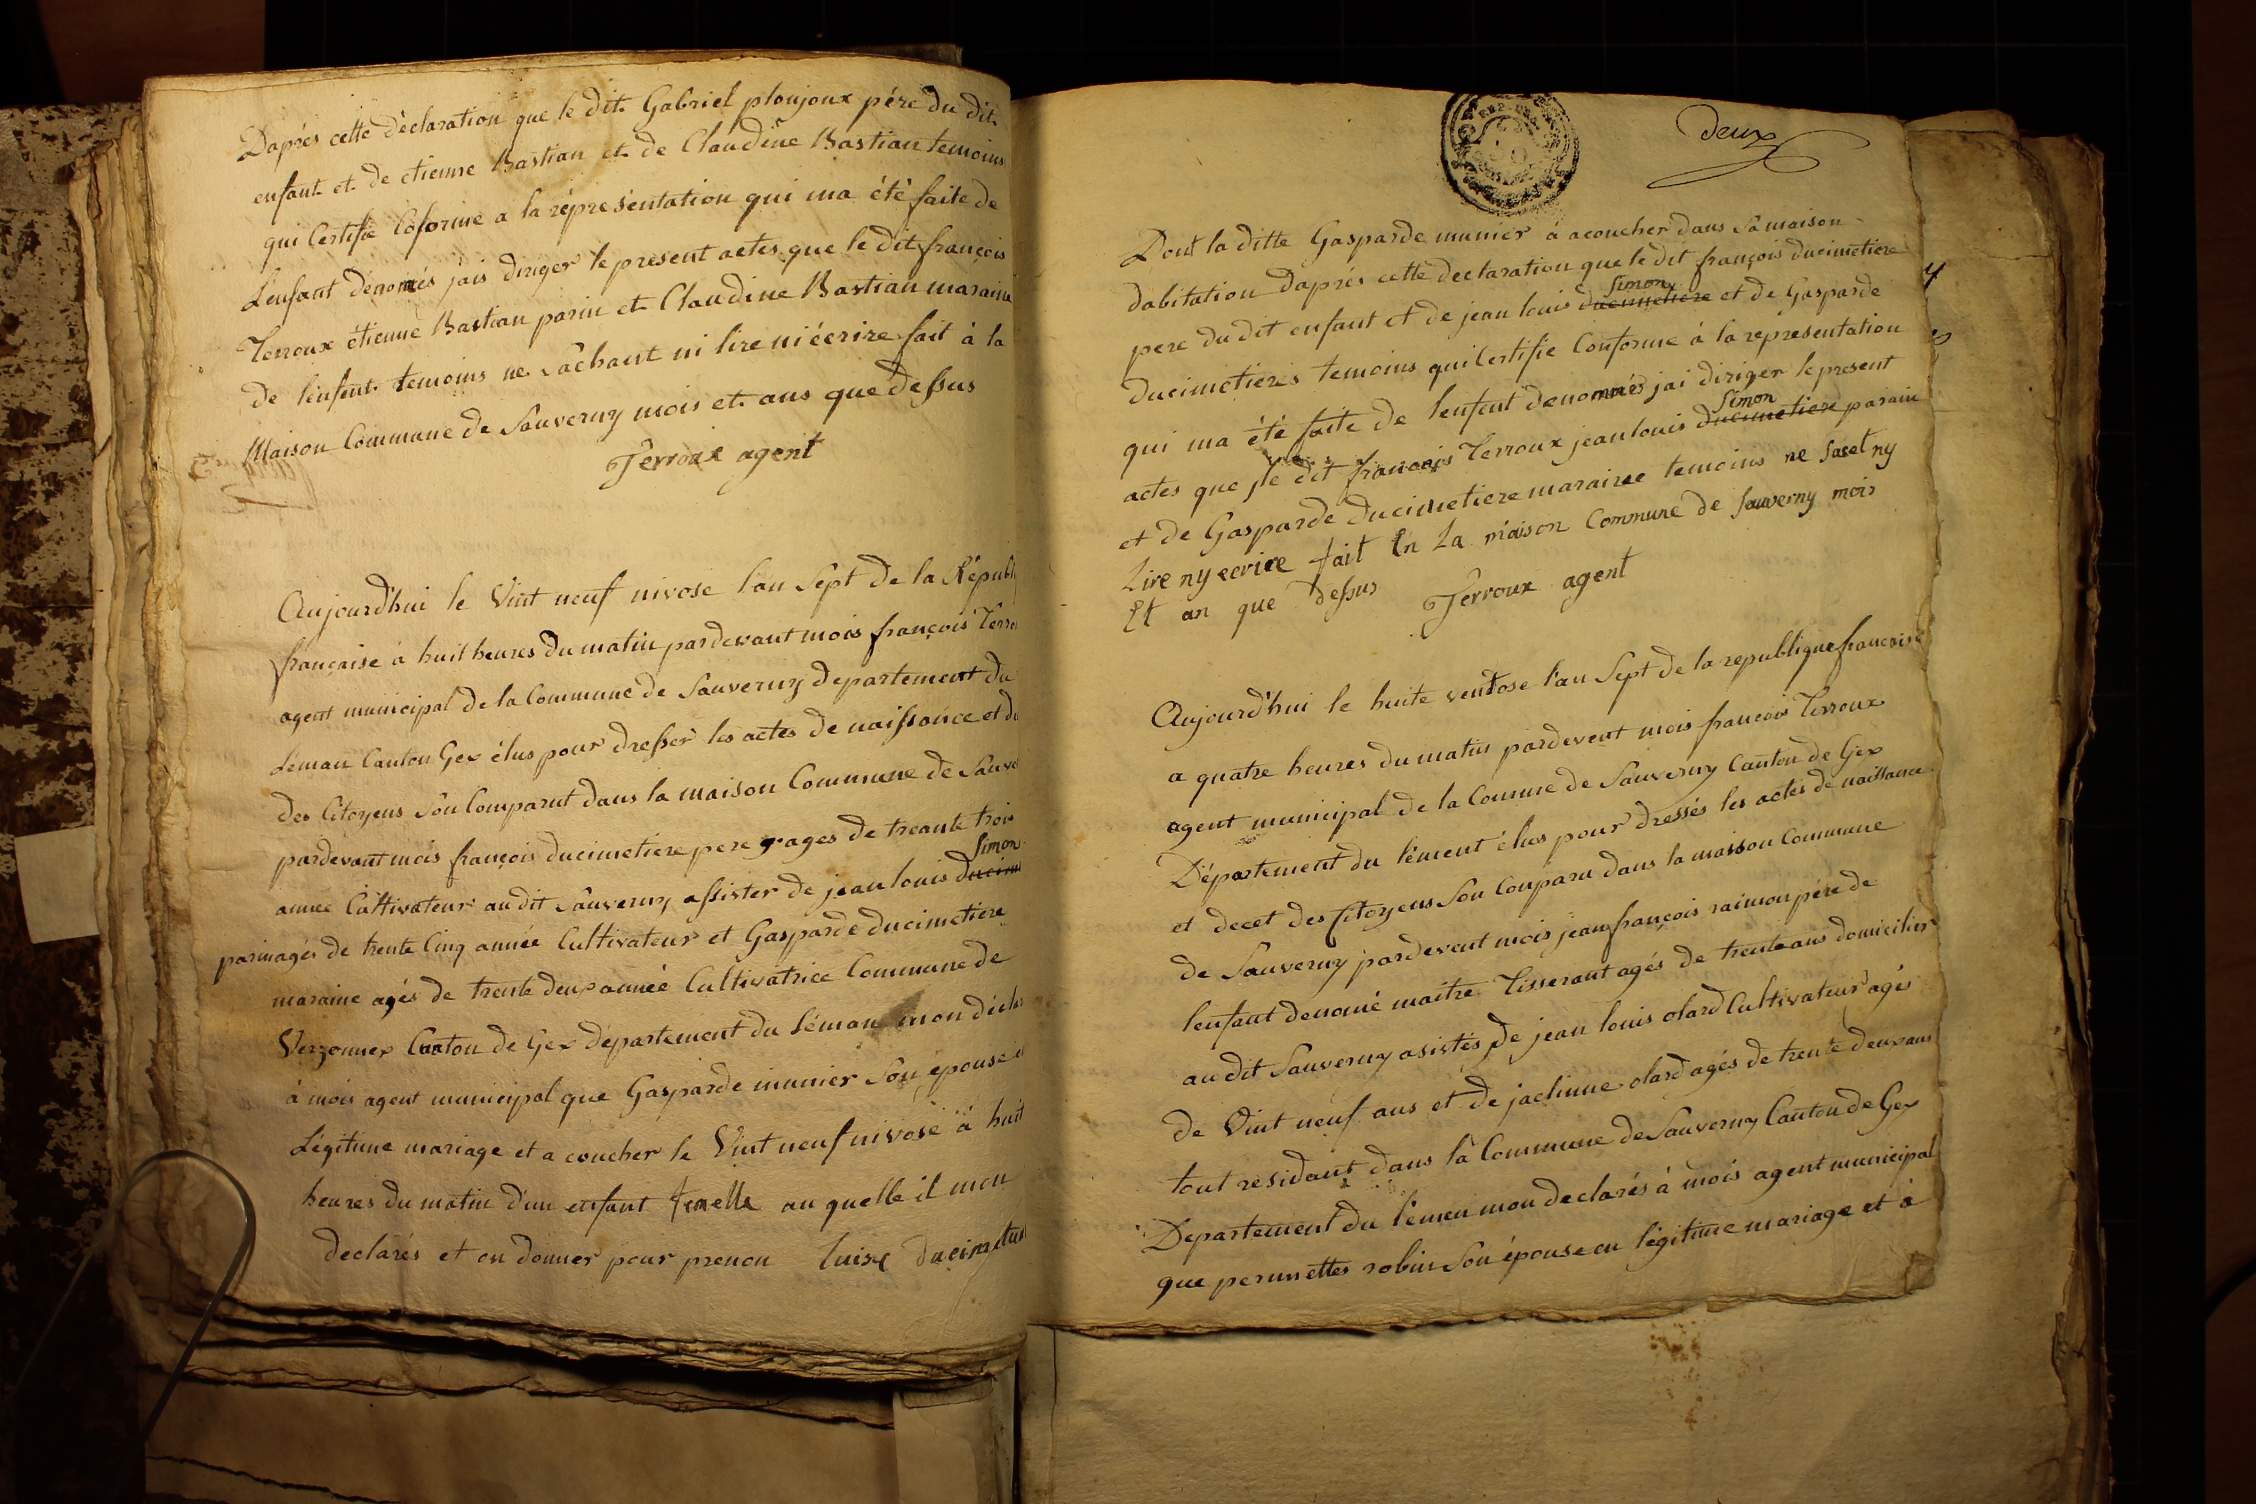 Daprés cette déclaration que le dit Gabriel ploujoux pére du dit
enfant et de etienne Bastian et de Claudine Bastian temoins
qui Certifie Coforme a la représentation qui ma été faite de
L'enfant dénomés jais diriger le présent actes que le dit françois
Terroux étienne Bastian parin et Claudine Bastian maraine
de lenfent temoins ne Sâchant ni lire ni écrire fait à la
Maison Commune de Sauverny mois et ans que dessus
Terroux agent
Aujourd'hui le Vint neuf nivose l'an Sept de la Républ
française à huit heures du matin pardevant mois françois Terro
agent municipal de la Commune de Sauverny departement du
Léman Canton Gex élus pour dresser les actes de naissance et de
des Citoyens Son Comparut dans la maison Commune de Sauve
pardevant mois françois ducimetiere pere agés de treante trois
Simon
année Cultivateur au dit Sauverny assister de jean louis ducim
parin agés de trente Cinq année Cultivateur et Gasparde ducimetiere
maraine agés de trente deux année Cultivatrice Commune de
Verzonnex Canton de Gex département du Léman mon décla
à mois agent municipal que Gasparde munier Son épouse
Légitime mariage et a coucher le Vint neuf nivose à huit
heures du matin d'un enfant femelle au quelle il mon
declarés et on donner pour prenon Luise ducimetie
deux
Dout la ditte Gasparde munier à acoucher dans Sa maison
dabitation daprés cette declaration que le dit françois ducimetiere
Simon
pere du dit enfant et de jean louis ducimetiere et de Gasparde
ducimetieres temoins qui Certifie Conforme à la representation
qui ma été faite de l'enfent denommés jai diriger le present
Simon
actes que le dit françois Terroux jean louis ducimetiere parain
et de Gasparde ducimetiere maraine temoins ne Savet ny
Lire ny ecrire fait En La maison Commune de Sauverny mois
Et an que dessus Terroux agent
Aujourd'hui le huite ventose l'an Sept de la republique francaise
a quatre heures du matin pardevent mois francois Terroux
agent municipal de la Comune de Sauverny Canton de Gex
Département du lément élus pour dressés les actes de naissance
et decet des Citoyens Son Comparu dans la maison Commune
de Sauverny pardevent mois jean françois raimon pére de
lenfant denomé maitre Tisserant agés de trente ans domicilier
au dit Sauverny asistés de jean louis olard Cultivateur agés
de Vint neuf ans et de jaclinne olard agés de trente deux ans
tout residant dans la Commune de Sauverny Canton de Gex
Departement du lémen mon declarés à mois agent municipal
que pernnettes robin Son épouse en légitime mariage et à